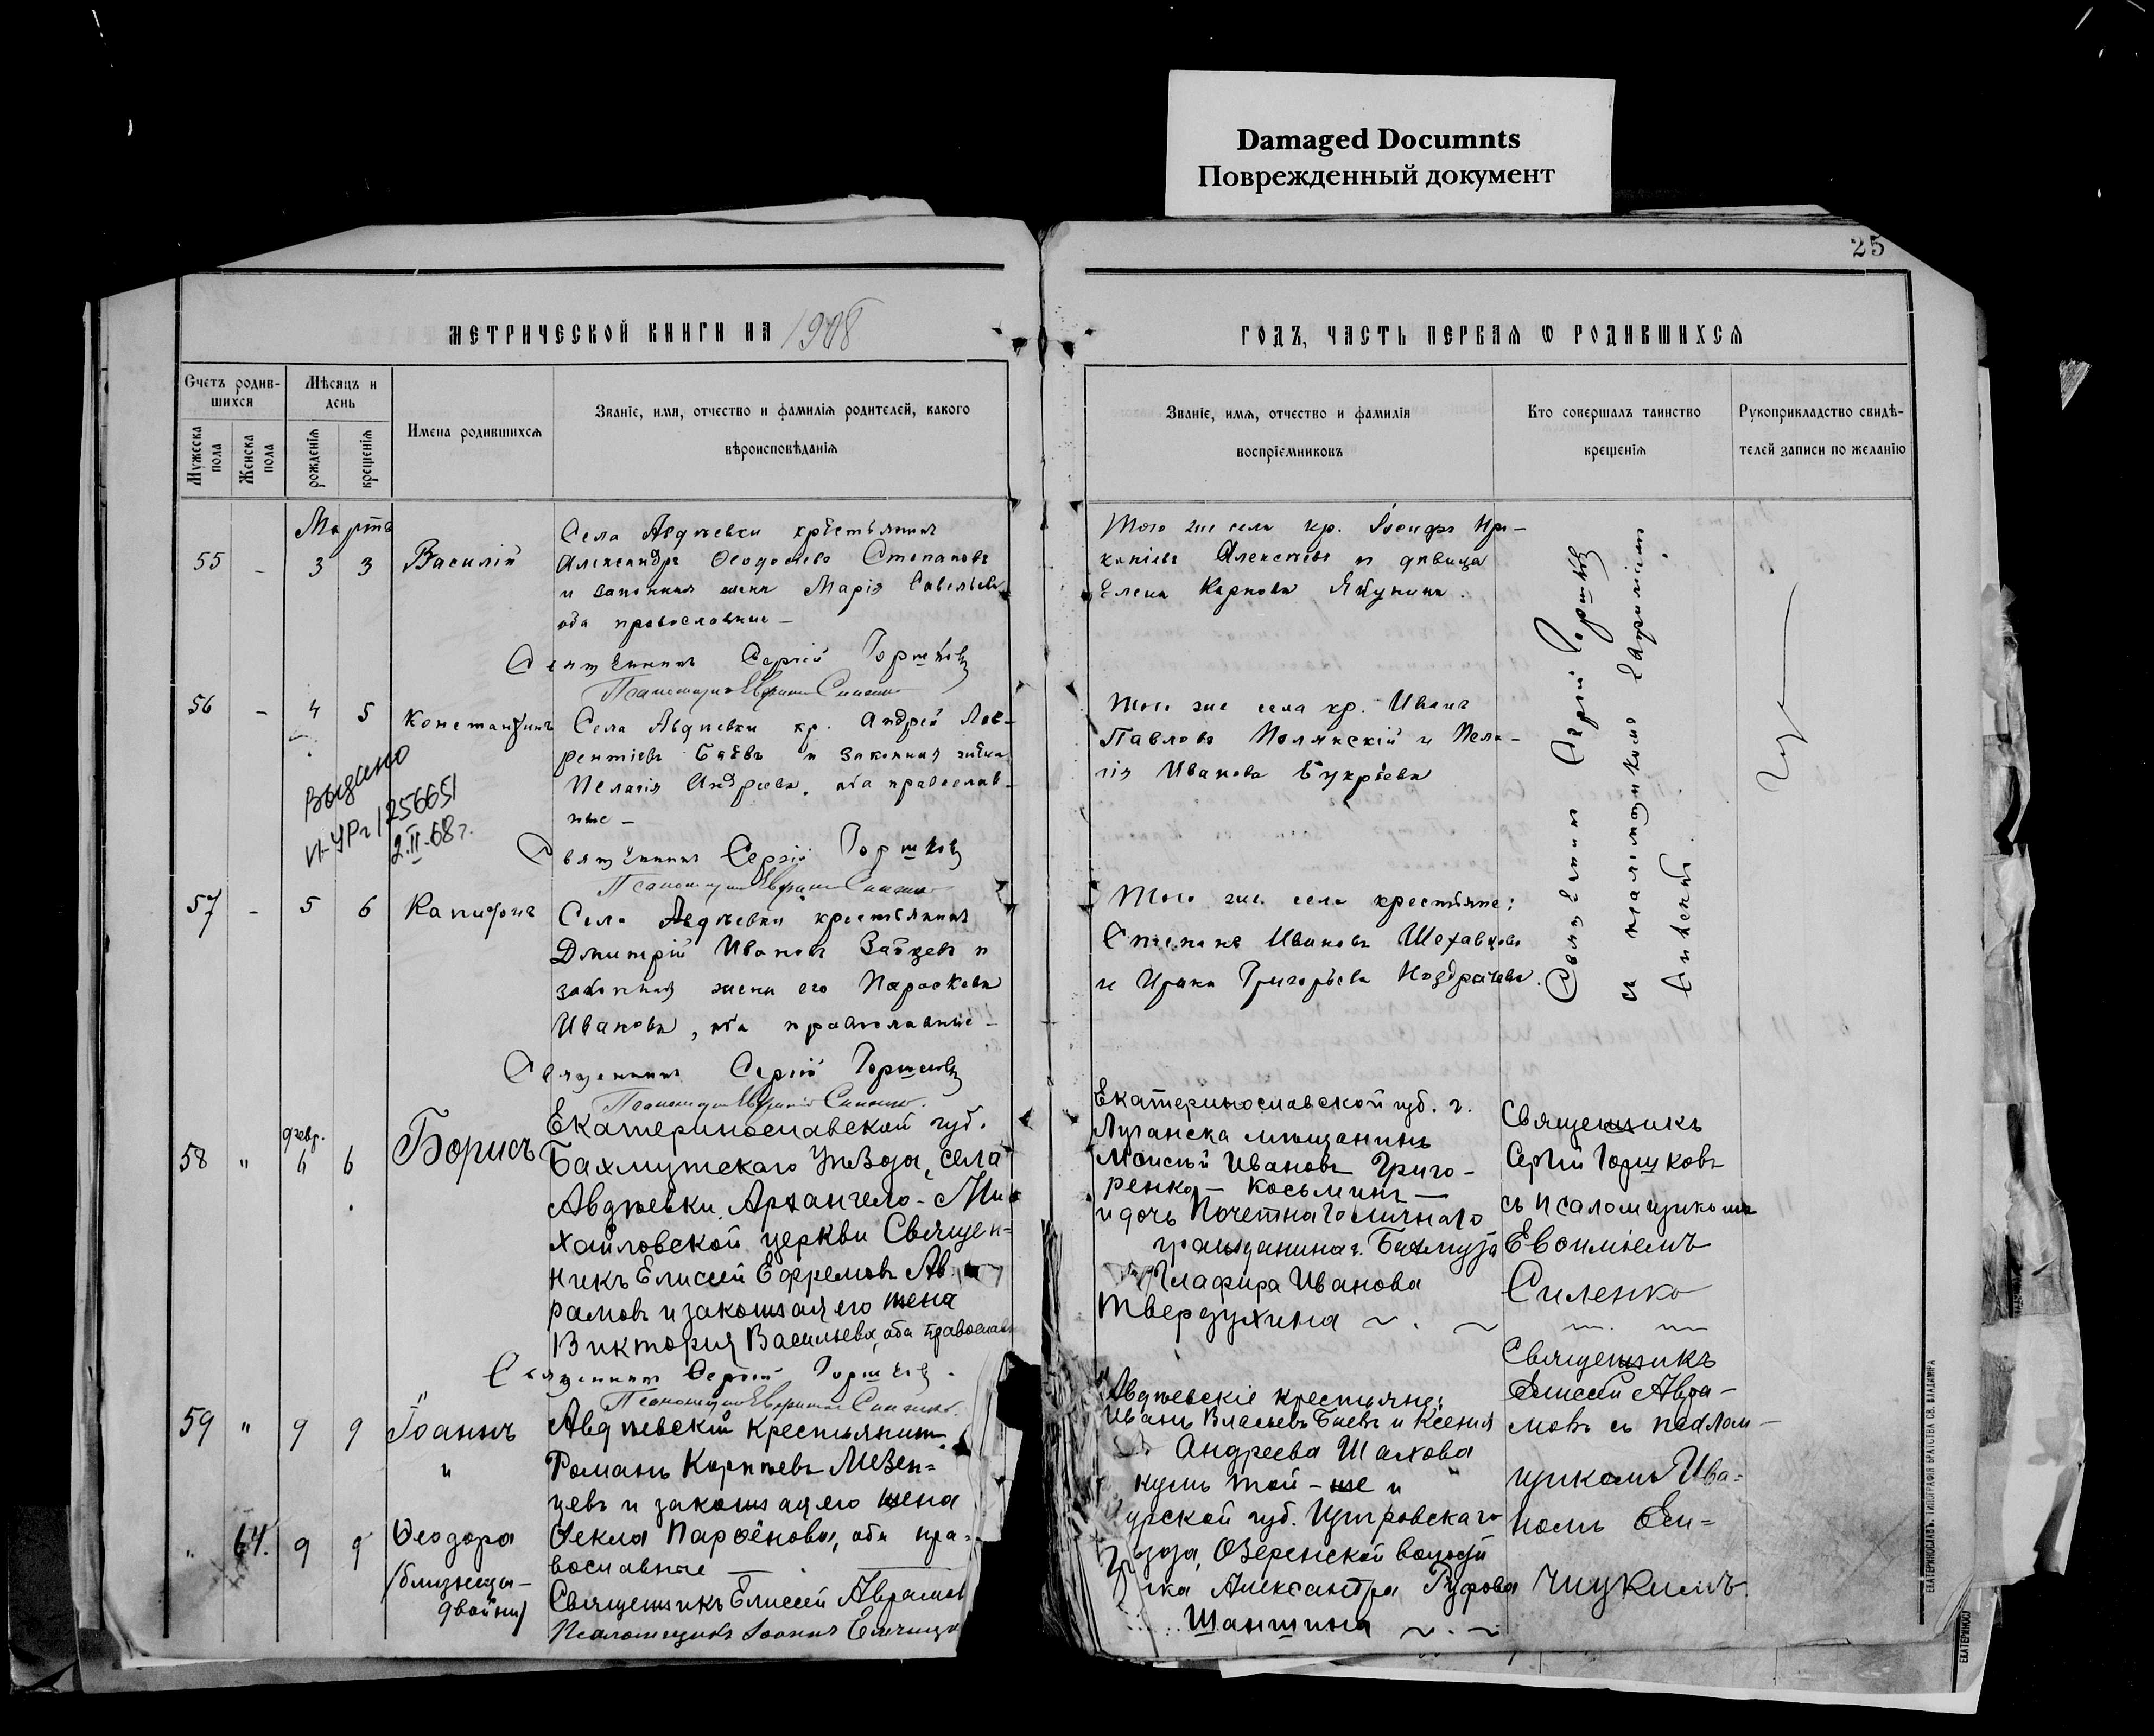 Damaged Documnts
Поврежденный документ
25
МЕТРИЧЕСКОЙ КНИГИ НА 1908
ГОДЪ, ЧАСТЬ ПЕРВАЯ Ѡ РОДИВШИХСЯ
Счетъ родив-
шихся
Мужеска пола
Женска пола
Мѣсяцъ и
день
рожденія
крещенія
Имена родившихся
Званіе, имя, отчество и фамилія родителей, какого
вѣроисповѣданія
Званіе, имя, отчество и фамилія
воспріемниковъ
Кто совершалъ таинство
крещенія
Рукоприкладство свидѣ-
телей записи по желанію
Мартъ
55 - 3 3 Василій
Села Авдѣевки крестьянинъ
Александръ Ѳеодосіевъ Степановъ
и законная жена Марія Савельева
оба православные -
Священникъ Сергій Горшковъ
Того же села кр.
Алексѣевъ и дѣвица
Елена Карпова Якунина.
56 - 4 5 Константинъ
Села Авдѣевки кр. Андрей Лав-
рентіевъ Баевъ и законная жена
Пелагія Андреева, оба православ-
ные -
Священникъ Сергій Горшковъ
Выдано
VI-УР 1256651
2.II-68 г.
Того же села кр. Иванъ
Павловъ Полянскій и Пела-
гія Иванова Букрѣева
57 - 5 6 Капитонъ
Села Авдѣевки крестьянинъ
Дмитрій Ивановъ Зайцевъ и
законная жена его Параскева
Иванова, оба православные -
Священникъ Сергій Горшковъ
Того же села крестьяне:
Степанъ Ивановъ Шехавцовъ
и Ирина Григорьева Ноздрачева.
Священникъ Сергій Горшковъ
съ псаломщикомъ
58 " февр. 4 6 Борисъ
Екатеринославской губ.
Бахмутскаго Уѣзда, села
Авдѣевки Архангело-Ми-
хайловской церкви Священ-
никъ Елисей Ефремовъ Ав-
рамовъ и законная его жена
Виктория Васильева, оба православн
Священникъ Сергій Горшковъ.
Екатеринославской губ. г.
Луганска мѣщанинъ
Моисей Ивановъ Григо-
ренко - Косьминъ -
и дочь Почетнаго личнаго
гражданина г. Бахмута
Глафира Иванова
Твердухина
Священникъ
Сергій Горшковъ
съ псаломщикомъ
Евѳиміемъ
Силенко
59 " 9 9 Іоаннъ
и
" 64. 9 9 Ѳеодора
(близнецы -
двойни)
Авдѣевскій крестьянинъ
Романъ Карпѣевъ Мезен-
цевъ и законная его жена
Ѳекла Парѳёнова, оба пра-
вославные
Священникъ Елисей Аврамов
Псаломщикъ Іоаннъ
Авдѣевскіе крестьяне:
Иванъ Власьевъ Баевъ и Ксения
Андреева Шахова
той-же и
урской губ. Щигровскаго
ѣзда, Озеренской волости
Александра Руфова
Шаншина
Священникъ
Елисей Авра-
мовъ съ псалом-
щикомъ Ива-
номъ Ели-
чицкимъ.
ЕКАТЕРИНОСЛАВЪ. ТИПОГРАФІЯ БРАТСТВА СВ. ВЛАДИМІРА